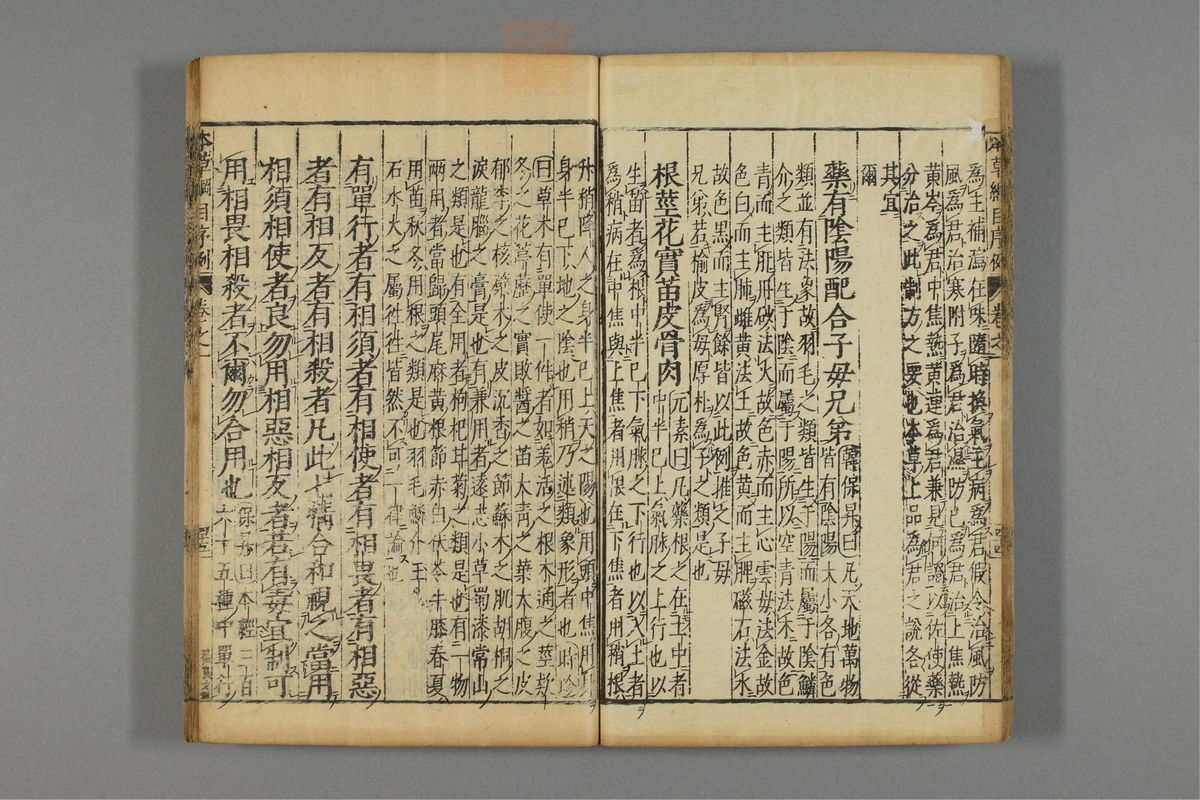 本草綱目序例 卷之一
爲主補瀉在味隨時換氣主病爲君假令治風防
風爲君治寒附子爲君治濕防己爲君治上焦熱
黃芩爲君中焦熱黃連爲君兼見何證以佐使藥
分治之此制方之要也本草上品爲君之說各從
其宜
爾
藥有陰陽配合子母兄弟
韓保昇曰凡天地萬物
皆有陰陽大小各有色
類並有法象故羽毛之類皆生于陽而屬于陰鱗
介之類皆生于陰而屬于陽所以空青法木故色
青而主肝丹砂法火故色赤而主心雲母法金故
色白而主肺雌黃法土故色黃而主脾磁石法水
故色黑而主腎餘皆以此例推之子母
兄弟若榆皮爲母厚朴爲子之類是也
根莖花實苗皮骨肉
元素曰凡藥根之在土中者
中半已上氣脉之上行也以
生苗者爲根中半已下氣脉之下行也以入土者
爲稍病在中焦與上焦者用根在下焦者用稍根
升稍降人之身半已上天之陽也用頭中焦用身
身半已下地之陰也用稍乃述類象形者也時珍
曰草木有單使一件者如羗活之根木通之莖欵
冬之花葶藶之實敗醬之苗大青之葉大腹之皮
郁李之核蘗木之皮沉香之節蘇木之肌胡桐之
淚龍腦之膏是也有兼用者遠志小草蜀漆常山
之類是也有全用者枸杞甘菊之類是也有一物
兩用者當歸頭尾麻黃根節赤白伏苓牛膝春夏
用苗秋冬用根之類是也羽毛鱗介玉
石水火之屬往往皆然不可一律論也
有單行者有相須者有相使者有相畏者有相惡
者有相反者有相殺者凡此七情合和視之當用
相須相使者良勿用相惡相反者若有毒宜制可
用相畏相殺者不爾勿合用也
保昇曰本經三百
六十五種中單行
本草綱目序例 卷之一